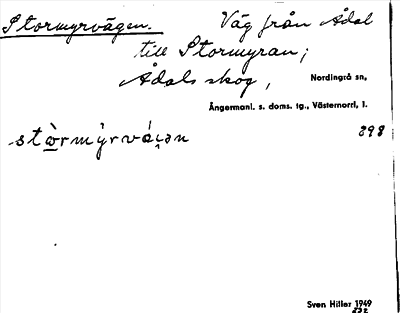 Stormyrvägen. Väg från Ådal
till Stormyran;
Ådals skog, Nordingrå sn,
Ångermanl. s. doms. tg., Västernorrl. l.
898
Sven Hiller 1949